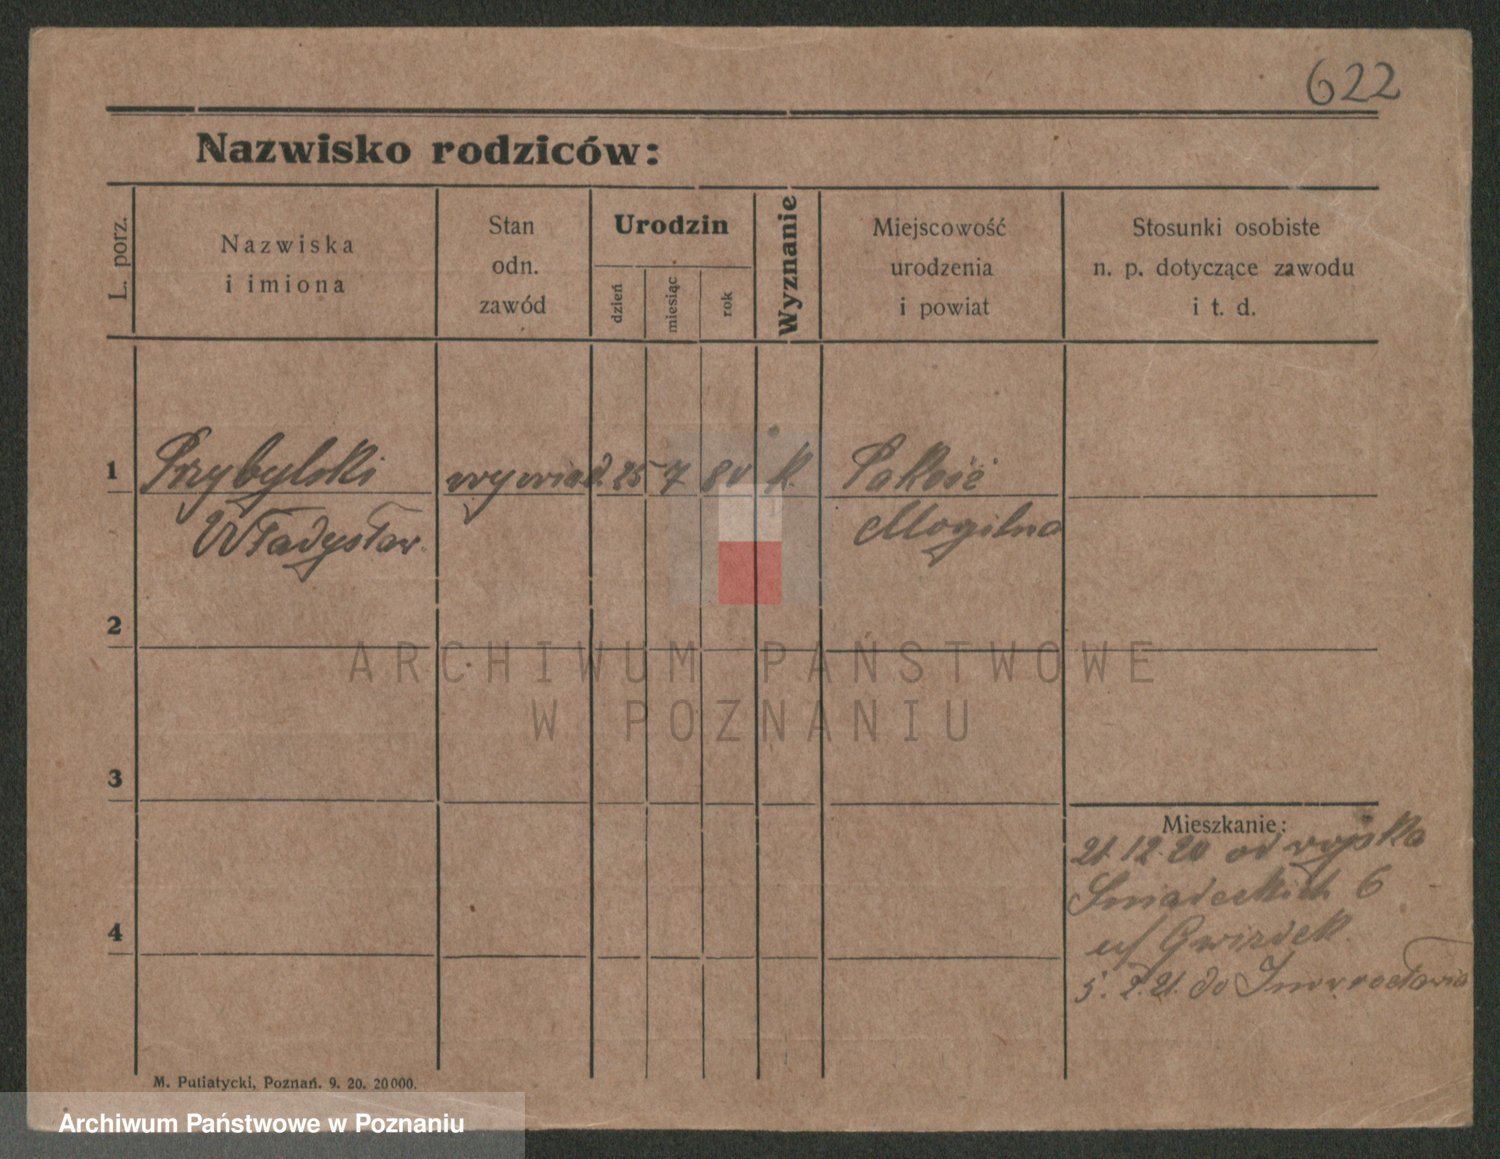 622
Nazwisko rodziców:
L. porz.
Nazwiska
i imiona
Stan
odn.
zawód
Urodzin
dzień
miesiąc
rok
Wyznanie
Miejscowość
urodzenia
i powiat
Stosunki osobiste
n. p. dotyczące zawodu
i t. d.
1 Przybylski wywiad. 25 7 80 k. Pakość
Władysław. Mogilno
2
3
4
Mieszkanie:
21.12.20 od wojska
Śniadeckich 6
u/ Gwizdek
5. 2. 21. do Inowrocławia
M. Putiatycki, Poznań. 9. 20. 20000.
ARCHIWUM PAŃSTWOWE
W POZNANIU
Archiwum Państwowe w Poznaniu